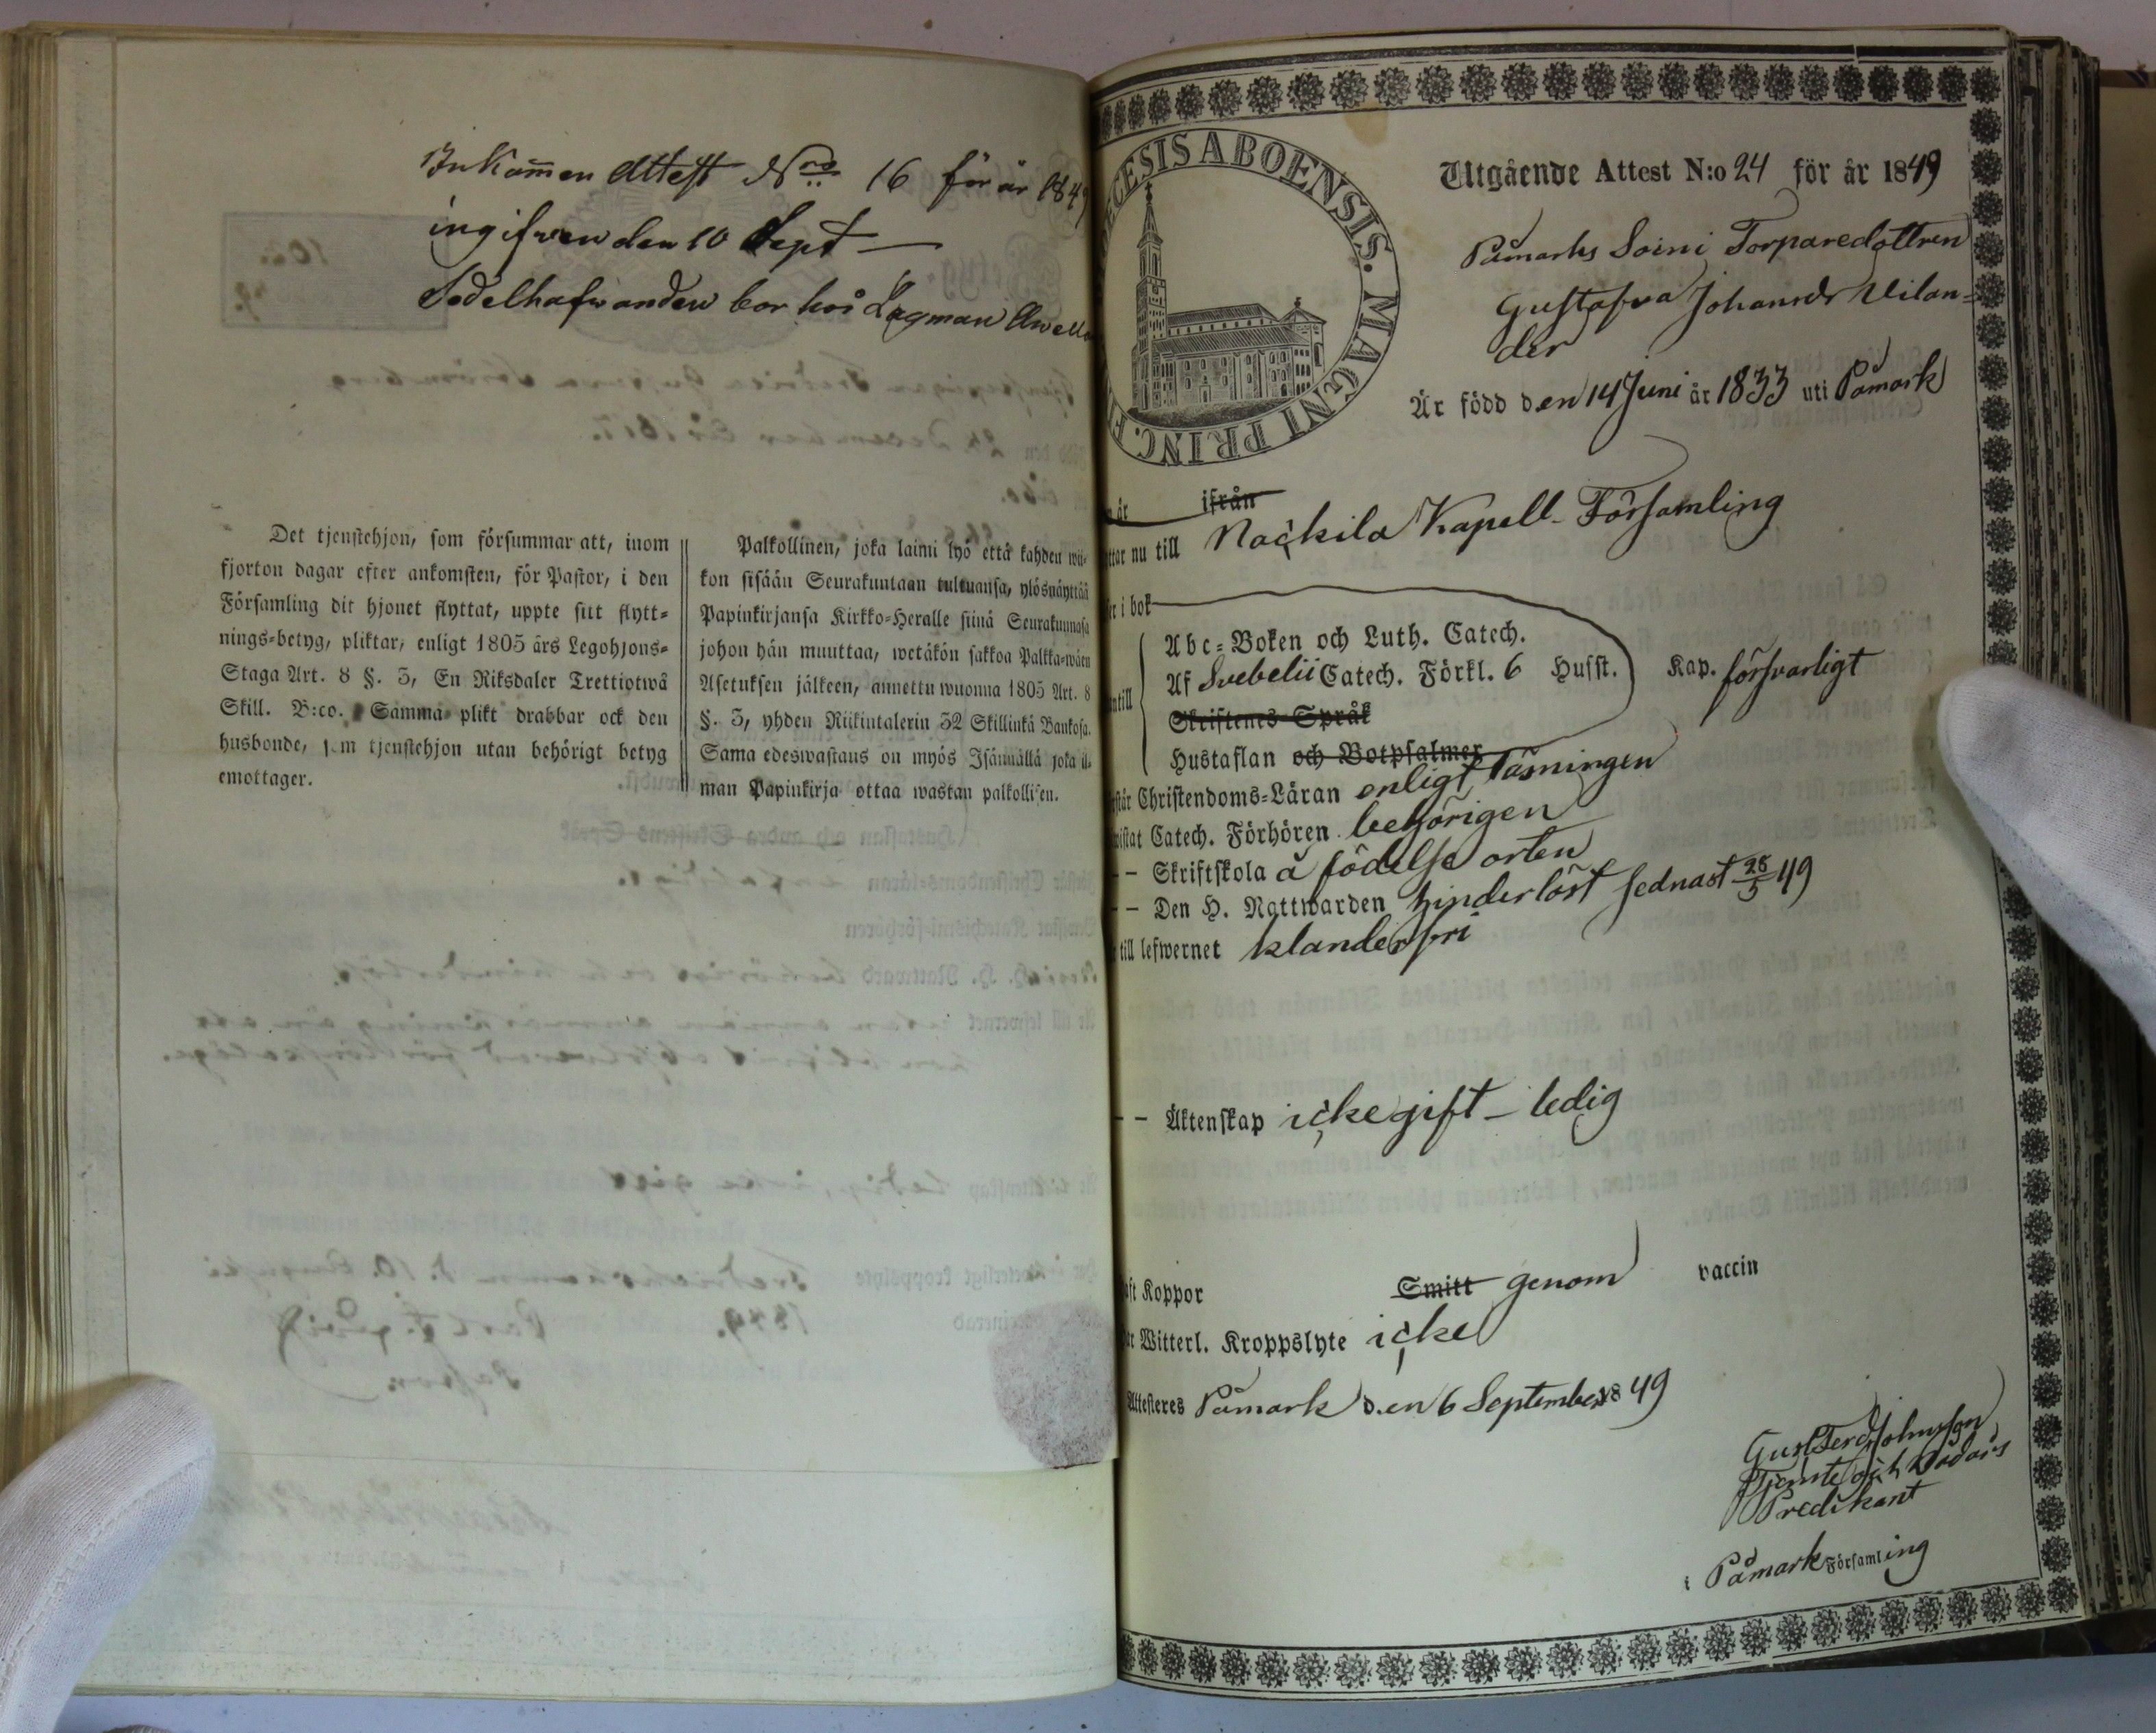 Inkommen Attest N:ro 16 för år 184
ingifwen den 10 Sept —
Sedelhafwanden bor hos Lagman
Det tjenstehjon, som försummar att, inom
fjorton dagar efter ankomsten, för Pastor, i den
Församling dit hjonet flyttat, uppte sitt flytt=
nings=betyg, pliktar, enligt 1805 års Legohjons=
Staga Art. 8 §. 5, En Riksdaler Trettiotwå
Skill. B:co. Samma plikt drabbar ock den
husbonde, som tjenstehjon utan behörigt betyg
emottager.
Palkollinen, joka laimi lyö että kahden wii-
kon sisään Seurakuntaan tultuansa, ylösnäyttää
Papinkirjansa Kirkko=Heralle siinä Seurakunnasa
johon hän muuttaa, wetäkön sakkoa Palkka=wäen
Asetuksen jälkeen, annettu wuonna 1805 Art. 8
§. 5, yhden Riikintalerin 32 Skillinkä Bankosa.
Sama edeswastaus on myös Isännällä joka il-
man Papinkirja ottaa wastan palkollisen.
ECESIS ABOENSIS. MAGNI PRINC. F
Utgående Attest N:o 24 för år 1849
Påmarks Soini Torparedottren
Gustafva Johansdr Vilan=
der
Är född den 14 Juni år 1833 uti Påmark
är ifrån
ttar nu till Nackila Kapell-Församling
er i bok
Abc=Boken och Luth. Catech.
ntill Af Svebelii Catech. Förkl. 6 Husst. Kap. försvarligt
Skriftenes Språk
Hustaflan och Botpsalmer
står Christendoms=Läran enligt läsningen
wistat Catech. Förhören behörigen
— Skriftskola å födelse orten
— Den H. Nattwarden hinderlöst sednast 28/5 49
till lefwernet klanderfri
— Äktenskap icke gift - ledig
aft Koppor Smitt genom vaccin
r Witterl. Kroppslyte icke
Attesteres Påmark den 6 September 1849
Gust Ferd Johnsson
Tjenste och Wådårs
Predikant
i Påmark Församling